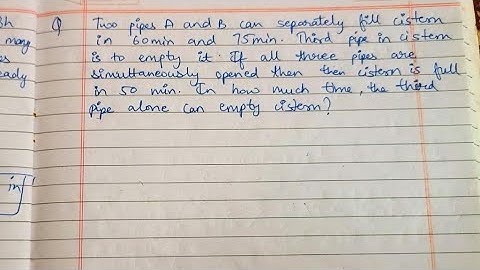 sh
many
es
eady
in
Q Two pipes A and B can separately fill cistern
in 60min and 75min. Third pipe in cistern
is to empty it. If all three pipes are
simultaneously opened then then cistern is full
in 50 min. In how much time, the third
pipe alone can empty cistern?